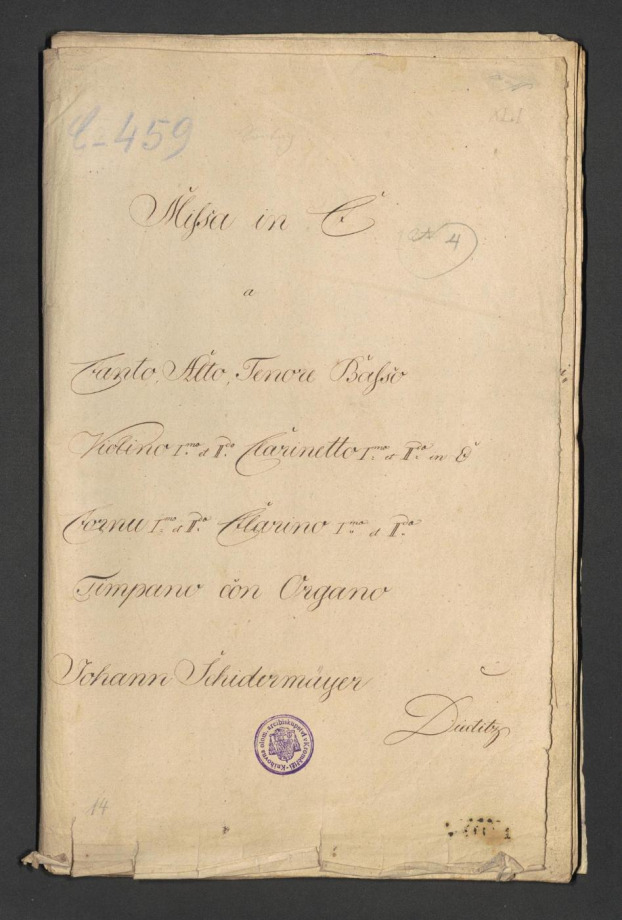 C-459
XLI
Missa in C
No 4
a
Canto, Alto, Tenore Basso
Violino Imo et IIdo Clarinetto Imo et IIdo in C
Cornu Imo et IIdo Clarino Imo et IIdo
Timpano con Organo
Johann Schidermayer
Knihovna olom. arcibiskupství v Kroměříži
14